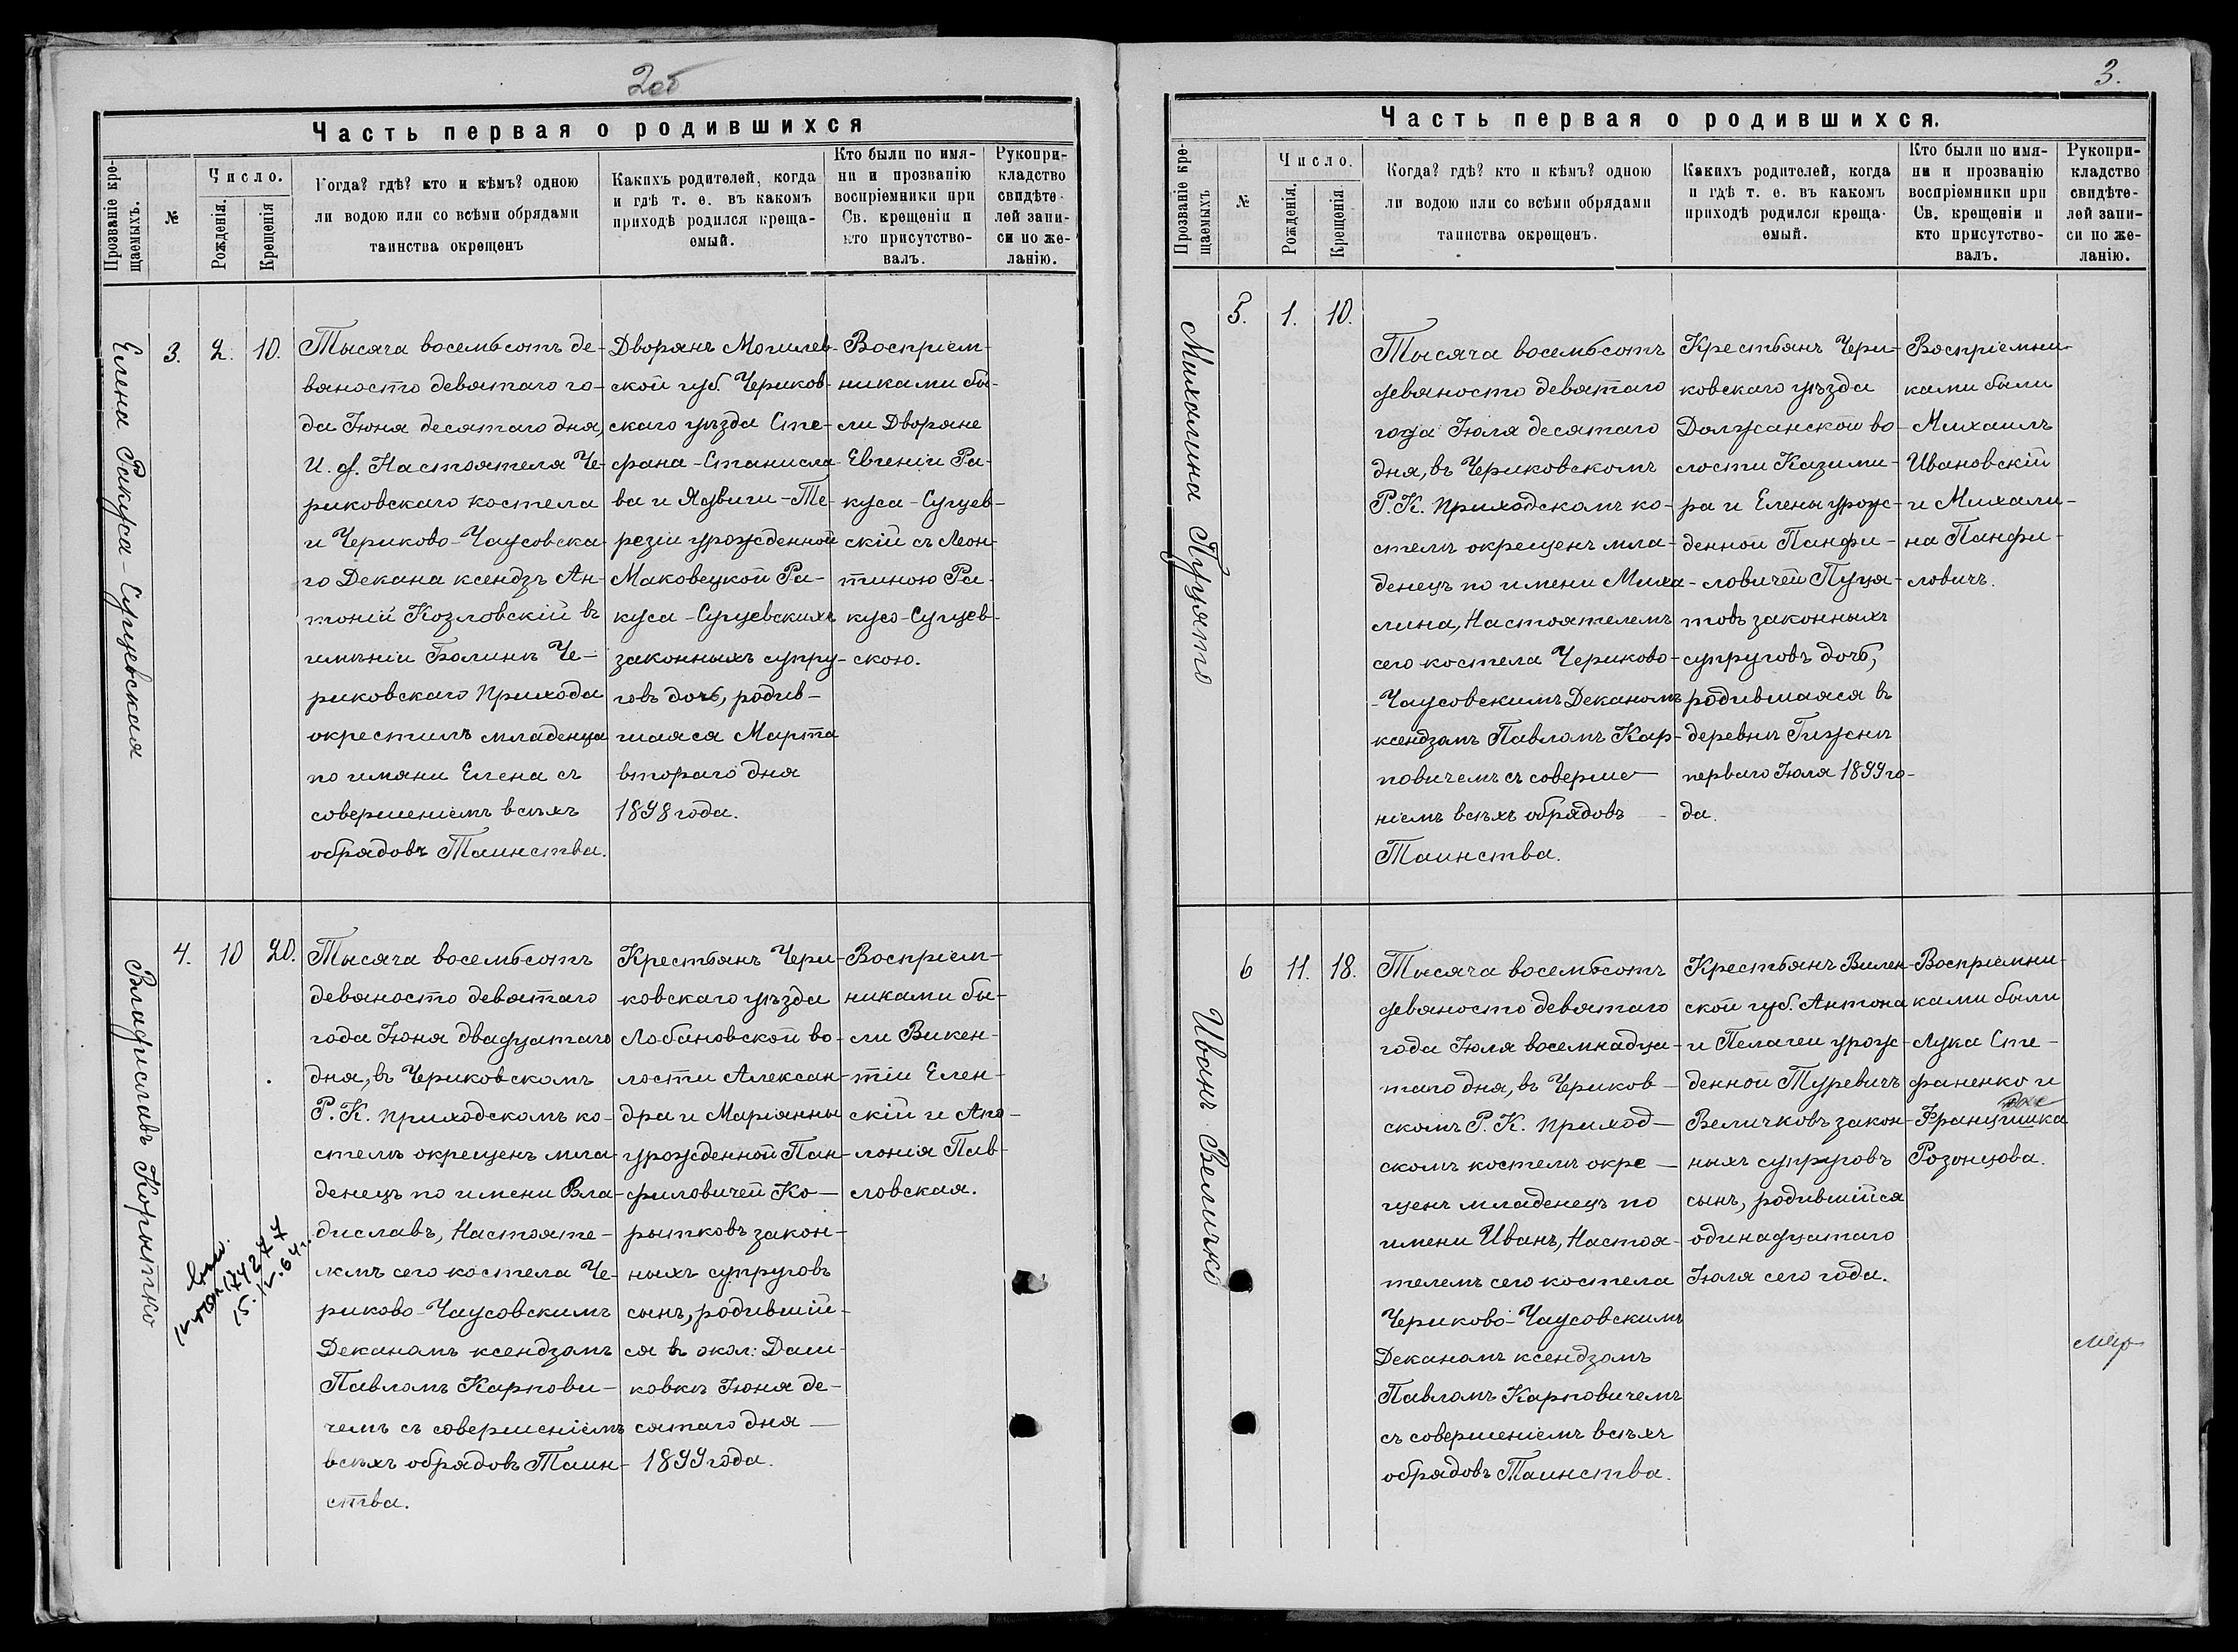 2об
Часть первая о родившихся
Прозваніе кре-
щаемыхъ.
№
Число.
Рожденія.
Крещенія
Когда? гдѣ? кто и кѣмъ? одною
ли водою или со всѣми обрядами
таинства окрещенъ
Какихъ родителей, когда
и гдѣ т. е. въ какомъ
приходѣ родился креща-
емый.
Кто были по имя-
ни и прозванію
воспріемники при
Св. крещеніи и
кто присутство-
валъ.
Рукопри-
кладство
свидѣте-
лей запи-
си по же-
ланію.
Елена Ракуса-Сущевская
3.
2.
10.
Тысяча восемьсотъ де-
вяносто девятаго го-
да Іюня десятаго дня,
И. д. Настоятеля Че-
риковскаго костела
и Чериково-Чаусовска-
го Декана ксендзъ Ан-
тоній Козловскій въ
имѣніи Болинъ Че-
риковскаго прихода
окрестилъ младенца
по имяни Елена съ
совершеніемъ всѣхъ
обрядовъ Таинства.
Дворянъ Могилев-
ской губ. Чериков-
скаго уѣзда Сте-
фана-Станисла
ва и Ядвиги-Те-
резіи урожденной
Маковецкой Ра-
куса-Сущевскихъ
законныхъ супру-
говъ дочь, родив-
шаяся Марта
втораго дня
1898 года.
Воспріем-
никами бы-
ли Дворяне
Евгеніи Ра-
куса-Сущев-
скій съ Леон-
тиною Ра-
кусо-Сущев-
скою.
Владиславъ Корытко
4.
10
20.
15.IV.64г.
Тысяча восемьсотъ
девяносто девятаго
года Іюня двадцатаго
дня, въ Чериковскомъ
Р. К. приходскомъ ко-
стелѣ окрещенъ мла-
денецъ по имени Вла-
диславъ, Настояте-
лемъ сего костела Че-
риково-Чаусовскимъ
Деканомъ ксендзомъ
Павломъ Карпови-
чемъ съ совершеніемъ
всѣхъ обрядовъ Таин-
ства.
Крестьянъ Чери-
ковскаго уѣзда
Лобановской во-
лости Алексан-
дра и Маріянны
урожденной Пан-
филовичей Ко-
рытковъ закон-
ныхъ супруговъ
сынъ, родившій-
ся въ окол: Даш-
ковкѣ Іюня де-
сятаго дня
1899 года.
Воспріем-
никами бы-
ли Викен-
тіи Елен-
скій и Апо-
лонія Пав-
ловская.
3.
Часть первая о родившихся.
Прозваніе кре-
щаемыхъ
№
Число.
Рожденія.
Крещенія
Когда? гдѣ? кто и кѣмъ? одною
ли водою или со всѣми обрядами
таинства окрещенъ.
Какихъ родителей, когда
и гдѣ т. е. въ какомъ
приходѣ родился креща-
емый.
Кто были по имя-
ни и прозванію
воспріемники при
Св. крещеніи и
кто присутство-
валъ.
Рукопри-
кладство
свидѣте-
лей запи-
си по же-
ланію.
Михалина Пуцято
5.
1.
10.
Тысяча восемьсотъ
девяносто девятаго
года Іюля десятаго
дня, въ Чериковскомъ
Р. К. приходскомъ ко-
стелѣ окрещенъ мла-
денецъ по имени Миха-
лина, Настоятелемъ
сего костела Чериково-
-Чаусовскимъ Деканомъ
ксендзомъ Павломъ Кар-
повичемъ съ соверше-
ніемъ всѣхъ обрядовъ
Таинства.
Крестьянъ Чери-
ковскаго уѣзда
Должанской во-
лости Казими-
ра и Елены урож-
денной Панфи-
ловичей Пуця-
товъ законныхъ
супруговъ дочь,
родившаяся въ
деревнѣ Гижнѣ
перваго Іюля 1899 го-
да.
Воспріемни-
ками были
Михаилъ
Ивановскій
и Михали-
на Панфи-
ловичъ.
Иванъ Величко
6
11.
18.
Тысяча восемьсотъ
девяносто девятаго
года Іюля восемнадца-
таго дня, въ Чериков-
скомъ Р. К. приход-
скомъ костелѣ окре-
щенъ младенецъ по
имени Иванъ, Настоя-
телемъ сего костела
Чериково-Чаусовскимъ
Деканомъ ксендзомъ
Павломъ Карповичемъ
съ совершеніемъ всѣхъ
обрядовъ Таинства.
Крестьянъ Вилен-
ской губ. Антона
и Пелагеи урож-
денной Туревичъ
Величковъ закон-
ныхъ супруговъ
сынъ, родившійся
одинадцатаго
Іюля сего года.
Воспріемни-
ками были
Лука Сте-
фаненко и
Францишка
Розонцова.